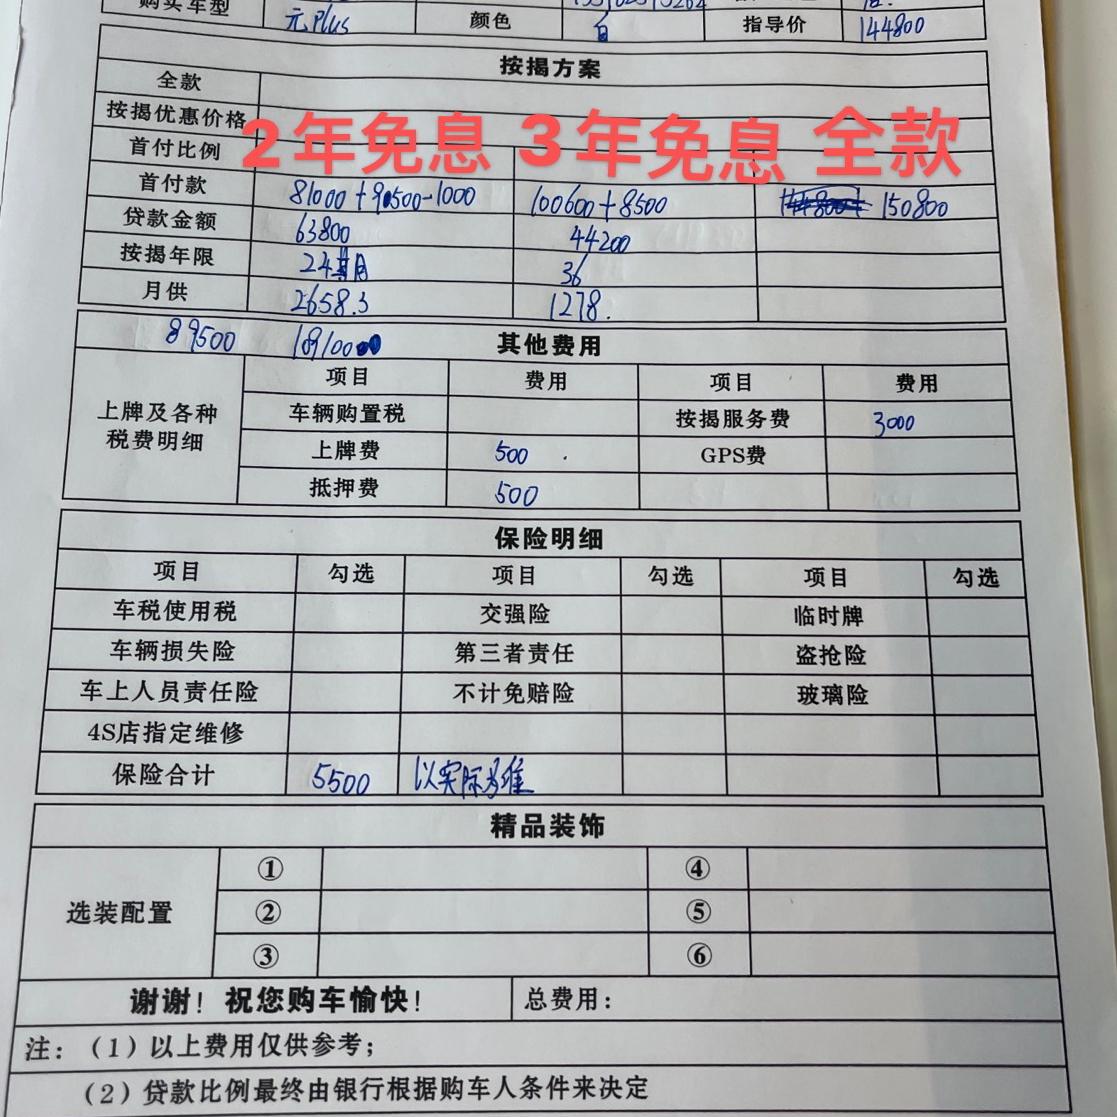 购买车型 元plus 颜色 白 指导价 144800
按揭方案
全款
按揭优惠价格
2年免息 3年免息 全款
首付比例
首付款 81000+90500-1000 100600+8500 150800
贷款金额 63800 44200
按揭年限 24 36
月供 2658.3 1278.
89500 109100 其他费用
上牌及各种税费明细
项目 费用 项目 费用
车辆购置税 按揭服务费 3000
上牌费 500 GPS费
抵押费 500
保险明细
项目 勾选 项目 勾选 项目 勾选
车税使用税 交强险 临时牌
车辆损失险 第三者责任 盗抢险
车上人员责任险 不计免赔险 玻璃险
4S店指定维修
保险合计 5500 以实际为准
精品装饰
① ④
选装配置 ② ⑤
③ ⑥
谢谢！祝您购车愉快！ 总费用：
注：（1）以上费用仅供参考；
（2）贷款比例最终由银行根据购车人条件来决定